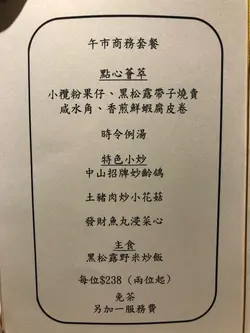 午市商務套餐
點心薈萃
小欖粉果仔、黑松露帶子燒賣
咸水角、香煎鮮蝦腐皮卷
時令例湯
特色小炒
中山招牌妙齡鴿
土豬肉炒小花菇
發財魚丸浸菜心
主食
黑松露野米炒飯
每位$238（兩位起）
免茶
另加一服務費